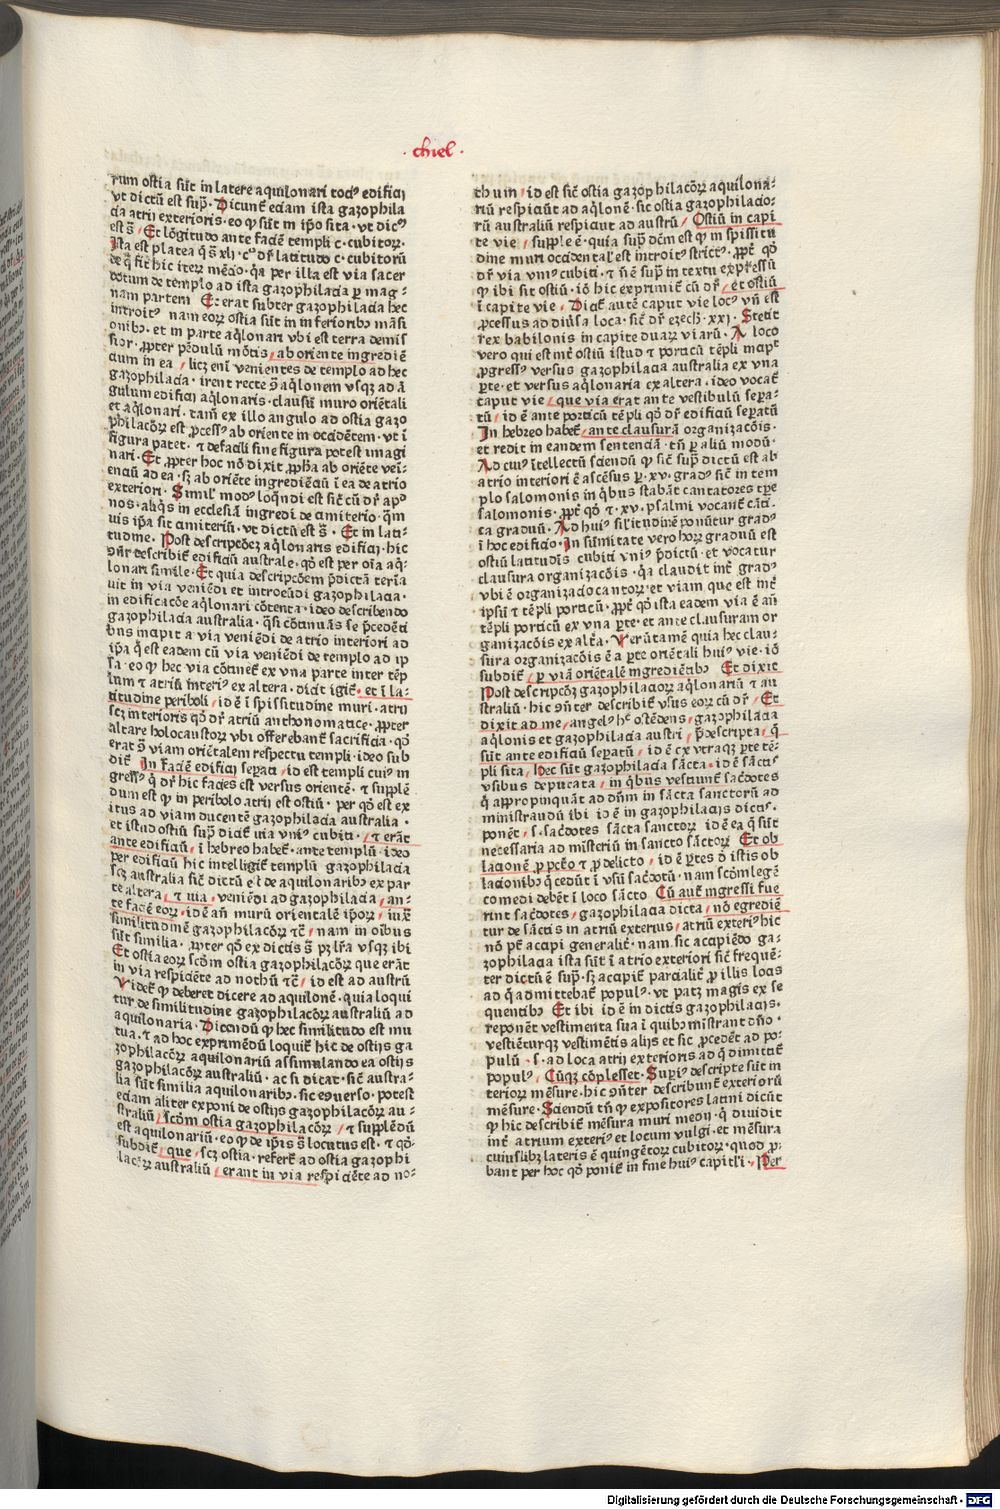 · chiel ·
rum ostia sūt in latere aquilonari toci⁹ edificij
vt dictū est sup̄ · Dicunt̄ eciam ista gazophila
cia atrij exterioris · eo ꝙ sūt in ip̄o sita · vt dic⁹
est s̄ / Et lōgitudo ante faciē templi c · cubitoꝝ ·
Ista est platea
de q̄ fit hic iteꝝ mēcio · q̄a per illa est via sacer
dotum de templo ad ista gazophilacia ꝑ mag-
nam partem Et erat subter gazophilacia hec
introit⁹ nam eoꝝ ostia sūt in inferioribꝰ māsi
onibꝰ · et in parte aq̄lonari vbi est terra demis
sior · ꝓpter pēdulū mōtis / ab oriente ingrediē
cium in ea / licꝫ enī venientes de templo ad hec
gazophilacia · irent recte ꝯ̄ aq̄lonem vsqꝫ ad ā
gulum edificij aq̄lonaris · clausū muro oriētali
et aq̄lonari · tamē ex illo angulo ad ostia gazo
philacōꝝ est ꝓcess⁹ ab oriente in occidētem · vt ī
figura patet · ⁊ de facili sine figura potest imagi
nari · Et ꝓpter hoc nō dixit ꝓph̄a ab oriēte veī-
enciū ad ea · sꝫ ab oriēte ingrediēciū ī ea de atrio
exteriori · Simil⁹ mod⁹ loq̄ndi est sic̄ cū dr̄ ap̄d
nos · aliq̄s in ecclesiā ingredi de cimiterio · q̄m
uis ip̄a sit cimiteriū · vt dictū est s̄ · Et in lati-
tudine · Post descripcōeꝫ aq̄lonaris edificij · hic
9n̄r describit̄ edificiū australe · qd̄ est per oīa aq̄-
lonari simile · Et quia descripcōem p̄dictā termī
uit in via veniēdi et introeūdi gazophilacia ·
in edificacōe aq̄lonari cōtenta · ideo describendo
gazophilacia australia · q̄si cōtinuās se p̄cedēti
bus incipit a via veniēdi de atrio interiori ad
ip̄a q̄ est eadem cū via veniēdi de templo ad ip
sa · eo ꝙ hec via cōtinet̄ ex vna parte inter tēp
lum ⁊ atriū interi⁹ ex altera · dicit igit̄ · et ī la-
titudine periboli / id ē ī spissitudine muri · atrij
scꝫ interioris qd̄ dr̄ atriū anthonomatice · ꝓpter
altare holocaustoꝝ vbi offerebant̄ sacrificia · qd̄
erat ꝯ̄ viam oriētalem respectu templi · ideo sub
dit̄ · In faciē edificij seꝑati / id est templi cui⁹ in
gress⁹ q̄ dr̄ hic facies est versus orientē · ⁊ supplē
dum est ꝙ in peribolo atrij est ostiū · per qd̄ est ex
itus ad viam ducentē gazophilacia australia ·
et istud ostiū sup̄ dicit̄ via vni⁹ cubiti · / ⁊ erāt
ante edificiū / ī hebreo habet̄ · ante templū · ideo
per edificiū hic intelligit̄ templū gazophilacia
scꝫ australia sic̄ dictū est de aquilonaribꝰ ex par
te altera / ⁊ via / veniēdi ad gazophilacia / an-
te faciē eoꝝ / id ē an̄ murū orientalē ip̄oꝝ / iuxͣ
similitudinē gazophilacōꝝ ⁊c̄ / nam in oībus
sūt similia · ꝓpter qd̄ ex dictis s̄ pꝫ lr̄a vsqꝫ ibi
Et ostia eoꝝ scd̄m ostia gazophilacōꝝ que erāt
in via respiciēte ad nothū ⁊c̄ / id est ad austrū
Videt̄ ꝙ deberet dicere ad aquilonē · quia loqui
tur de similitudine gazophilacōꝝ australiū ad
aquilonaria · Dicendū ꝙ hec similitudo est mu
tua · ⁊ ad hoc exprimēdū loquit̄ hic de ostijs ga
zophilacōꝝ aquilonariū assimulando ea ostijs
gazophilacōꝝ australiū · ac si dicat · sic̄ austra-
lia sūt similia aquilonaribꝰ · sic eꝯuerso · potest
eciam aliter exponi de ostijs gazophilacōꝝ au-
straliū / scd̄m ostia gazophilacōꝝ / ⁊ supplēdū
est aquilonariū · eo ꝙ de ip̄is s̄ locutus est · ⁊ qd̄
subdit̄ / que / scꝫ ostia · refert̄ ad ostia gazophi
lacōꝝ australiū / erant in via respiciēte ad no-
thum / id est sic̄ ostia gazophilacōꝝ aquilona-
riū respiciūt ad aq̄lonē · sic ostia gazophilacio-
rū australiū respiciūt ad austrū / Ostiū in capi
te vie / supple ē · quia sup̄ dc̄m est ꝙ in spissitu
dine muri occidental⁹ est introit⁹ strict⁹ · ꝓpt̄ qd̄
dr̄ via vni⁹ cubiti · ⁊ n̄ ē sup̄ in textu exp̄ssū
ꝙ ibi sit ostiū · iō hic exprimit̄ cū dr̄ / et ostiū
ī capite vie · Dicit̄ autē caput vie loc⁹ vn̄ est
ꝓcessus ad diūsa loca · sic̄ dr̄ ezech · xxj · Stetit
rex babilonis in capite duaꝝ viarū · A loco
vero qui est int̄ ostiū istud ⁊ porticū tēpli incipit
ꝓgress⁹ versus gazophilacia australia ex vna
ꝑte · et versus aq̄lonaria ex altera · ideo vocat̄
caput vie / que via erat ante vestibulū seꝑa-
tū / id ē ante porticū tēpli qd̄ dr̄ edificiū seꝑatū
In hebreo habet̄ / ante clausurā organizacōis ·
et redit in eandem sentenciā · tn̄ ꝑ aliū modū ·
Ad cui⁹ ītellectū sciendū ꝙ sic̄ sup̄ dictū est ab
atrio interiori ē ascēsus ꝑ · xv · grad⁹ sic̄ in tem
plo salomonis in q̄bus stabāt cantatores tp̄re
salomonis · ꝓpt̄ qd̄ ⁊ · xv · psalmi vocant̄ cāti-
ca graduū · Ad hui⁹ sil̄itudinē ponūtur grad⁹
ī hoc edificio · In sūmitate vero hoꝝ graduū est
ostiū latitudīs cubiti vni⁹ p̄dictū · et vocatur
clausura organizacōis · q̄a claudit int̄ grad⁹
vbi ē organizacio cantoꝝ · et viam que est int̄
ipsū ⁊ tēpli porticū · ꝓpt̄ qd̄ ista eadem via ē an̄
tēpli porticū ex vna ꝑte · et ante clausuram or
ganizacōis ex alt̄a · Verūtamē quia hec clau-
sura organizacōis ē a ꝑte oriētali hui⁹ vie · iō
subdit̄ / ꝑ viā oriētalē ingrediētibꝰ Et dixit
Post descripcōꝫ gazophilacioꝝ aq̄lonariū ⁊ au
straliū · hic 9n̄ter describit̄ vsus eoꝝ cū dr̄ / Et
dixit ad me / angel⁹ hꝰ ostēdens / gazophilacia
aq̄lonis et gazophilacia austri / p̄descripta / q̄
sūt ante edificiū seꝑatū / id ē ex vtraqꝫ ꝑte tē-
pli sita / Hec sūt gazophilacia sācta · id ē sāctis
vsibus deputata / in q̄bus vestiunt̄ sac̄dotes
q̄ appropinquāt ad dn̄m in sācta sanctorū ad
ministraudū ibi id ē in gazophilacijs dictis ·
ponēt / s · sac̄dotes sācta sanctoꝝ id ē ea q̄ sūt
necessaria ad misteriū in sancto sāctoꝝ Et ob
lacionē ꝓ pctō ⁊ ꝓ delicto / id ē ꝑtes d̄ istis ob
lacionibꝰ q̄ cedūt ī vsū sac̄dotū · nam scd̄m legē
comedi debēt ī loco sācto Cū aut̄ ingressi fue
rint sac̄dotes / gazophilacia dicta / nō egrediē
tur de sāctis in atriū exterius / atriū exteri⁹ hic
nō pt̄ accipi generalit̄ · nam sic accipiēdo ga-
zophilacia ista sūt ī atrio exteriori sic̄ frequē-
ter dictū ē sup̄ · sꝫ accipit̄ parcialit̄ ꝓ illis locis
ad q̄ admittebat̄ popul⁹ · vt patꝫ magis ex se
quentibꝰ Et ibi id ē in dictis gazophilacijs ·
reponēt vestimenta sua ī quibꝰ mīstrant dn̄o ·
vestiēturqꝫ vestimētis alijs et sic ꝓcedēt ad po-
pulū · s · ad loca atrij exterioris ad q̄ dimittit̄
popul⁹ / Cūqꝫ cōplesset · Superi⁹ descripte sūt in
terioꝝ mēsure · hic 9n̄ter describunt̄ exteriorū
mēsure · Sciendū tn̄ ꝙ expositores latini dicūt
ꝙ hic describit̄ mēsura muri medij · q̄ diuidit
int̄ atrium exteri⁹ et locum vulgi · et mēsura
cuiuslibꝫ lateris ē quingētoꝝ cubitoꝝ · quod ꝓ-
bant per hoc qd̄ ponit̄ in fine hui⁹ capitl̄i · Per
Digitalisierung gefördert durch die Deutsche Forschungsgemeinschaft - DFG